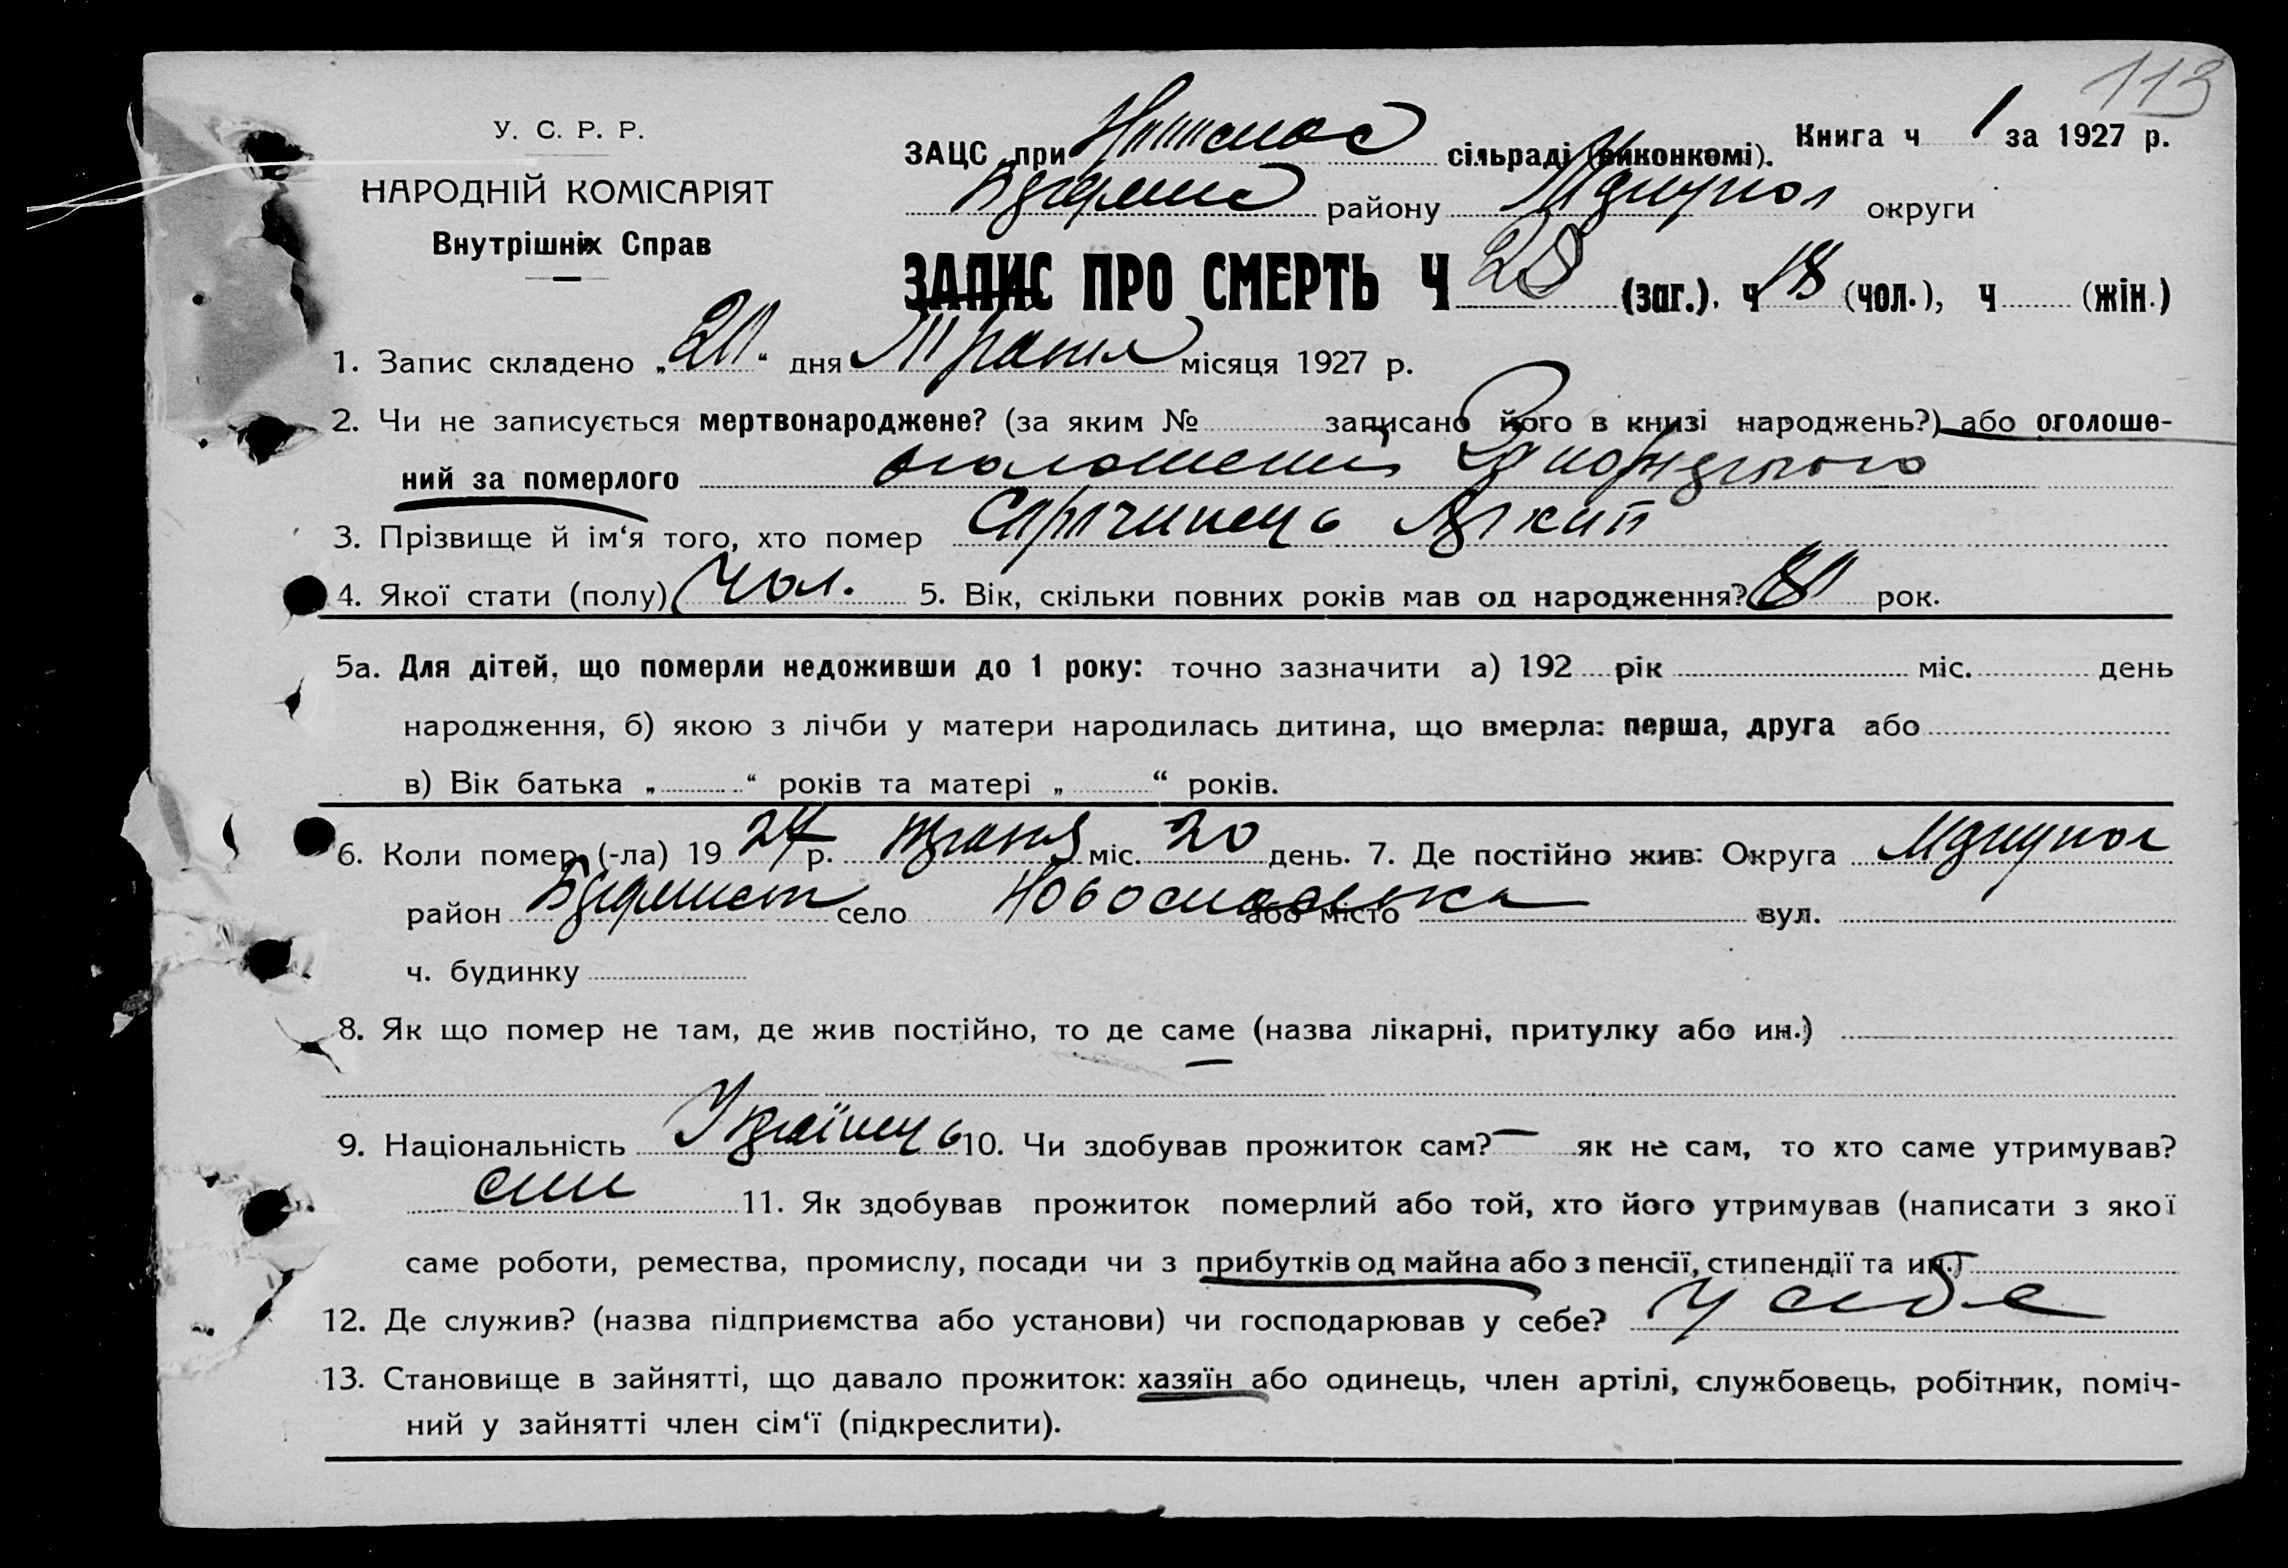 113
У. С. Р. Р.
НАРОДНІЙ КОМІСАРІЯТ
Внутрішніх Справ
ЗАЦС при сільраді (виконкомі). Книга ч 1 за 1927 р.
району Маріупол округи
ЗАПИС ПРО СМЕРТЬ Ч 28 (заг.). ч 18 (чол.), ч (жін.)
1. Запис складено „20“ дня Травня місяця 1927 р.
2. Чи не записується мертвонароджене? (за яким № записано його в книзі народжень?) або оголоше-
ний за померлого оголошений
3. Прізвище й ім‘я того, хто помер
4. Якої стати (полу) Чол. 5. Вік, скільки повних років мав од народження? 80 рок.
5а. Для дітей, що померли недоживши до 1 року: точно зазначити а) 192 рік міс. день
народження, б) якою з лічби у матери народилась дитина, що вмерла: перша, друга або
в) Вік батька „ “ років та матері „ “ років.
6. Коли помер (-ла) 1927 р. травня міс. 20 день. 7. Де постійно жив: Округа Маріупол
район село Новоспасівка або місто вул.
ч. будинку
8. Як що помер не там, де жив постійно, то де саме (назва лікарні, притулку або ин.)
9. Національність Українець 10. Чи здобував прожиток сам? — як не сам, то хто саме утримував?
син 11. Як здобував прожиток померлий або той, хто його утримував (написати з якої
саме роботи, ремества, промислу, посади чи з прибутків од майна або з пенсії, стипендії та ин.)
12. Де служив? (назва підприємства або установи) чи господарював у себе? у себе
13. Становище в зайнятті, що давало прожиток: хазяїн або одинець, член артілі, службовець, робітник, поміч-
ний у зайнятті член сім‘ї (підкреслити).